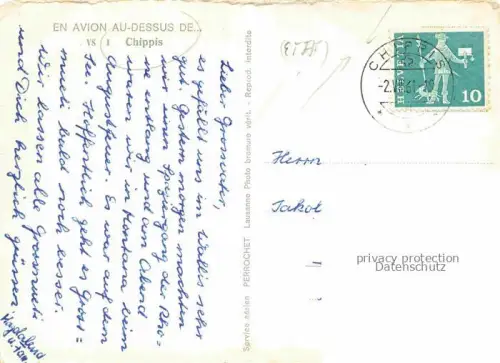 EN AVION AU-DESSUS DE...
VS 1 Chippis
Lieber Grossvater,
es gefällt uns im Wallis sehr
gut. Gestern morgen machten
wir einen Spaziergang der Rho-
ne entlang und am Abend
waren wir in Montana beim
Augustfeuer. Es war auf dem
See. Hoffentlich geht es Gross=
mueti bald noch besser.
Wir lassen alle Grossmueti
und Dich herzlich grüssen
Service aérien PERROCHET Lausanne Photo bromure vérit. - Reprod. interdite
CHIPPIS
HELVETIA
10
Herrn
Jakob
privacy protection
Datenschutz